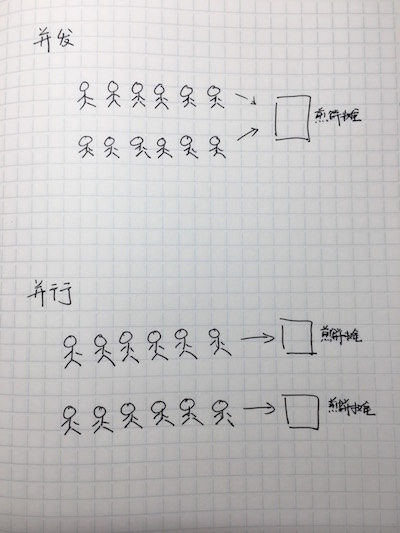 并发
煎饼摊
并行
煎饼摊
煎饼摊